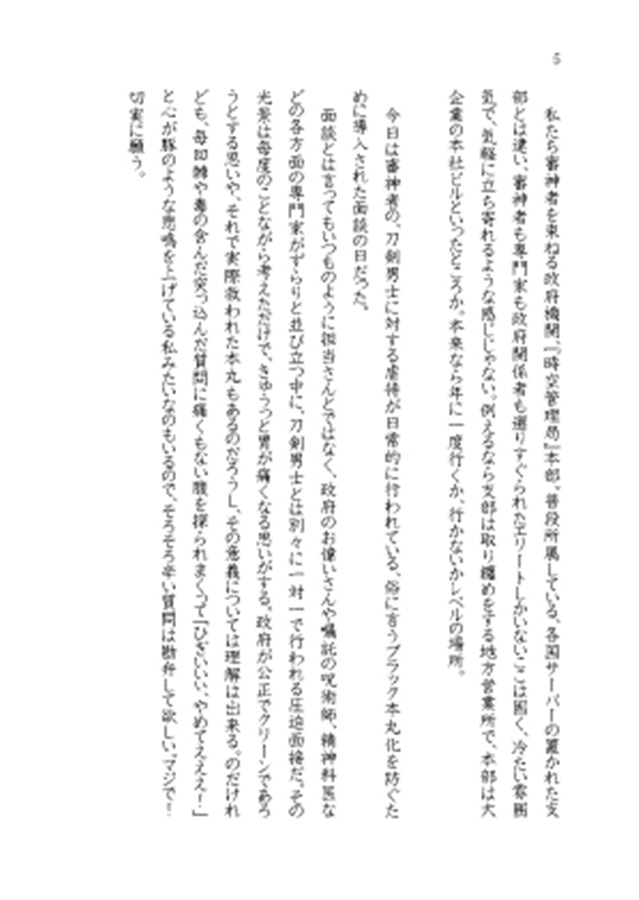 5
私たち審神者を束ねる政府機関、『時空管理局』本部。普段所属している、各国サーバーの置かれた支
部とは違い、審神者も専門家も政府関係者も選りすぐられたエリートしかいないここは固く、冷たい雰囲
気で、気軽に立ち寄れるような感じじゃない。例えるなら支部は取り纏めをする地方営業所で、本部は大
企業の本社ビルといったところか。本来なら年に一度行くか、行かないかレベルの場所。
今日は審神者の、刀剣男士に対する虐待が日常的に行われている、俗に言うブラック本丸化を防ぐた
めに導入された面談の日だった。
面談とは言ってもいつものように担当さんとではなく、政府のお偉いさんや嘱託の呪術師、精神科医な
どの各方面の専門家がずらりと並び立つ中に、刀剣男士とは別々に一対一で行われる圧迫面接だ。その
光景は毎度のことながら考えただけで、きゅうっと胃が痛くなる思いがする。政府が公正でクリーンであろ
うとする思いや、それで実際救われた本丸もあるのだろうし、その意義については理解は出来る。のだけれ
ども、毎回棘や毒の含んだ突っ込んだ質問に痛くもない腹を探られまくって「ひぎぃいいい、やめてえええ！」
と心が豚のような悲鳴を上げている私みたいなのもいるので、そろそろ辛い質問は勘弁して欲しい。マジで！
切実に願う。